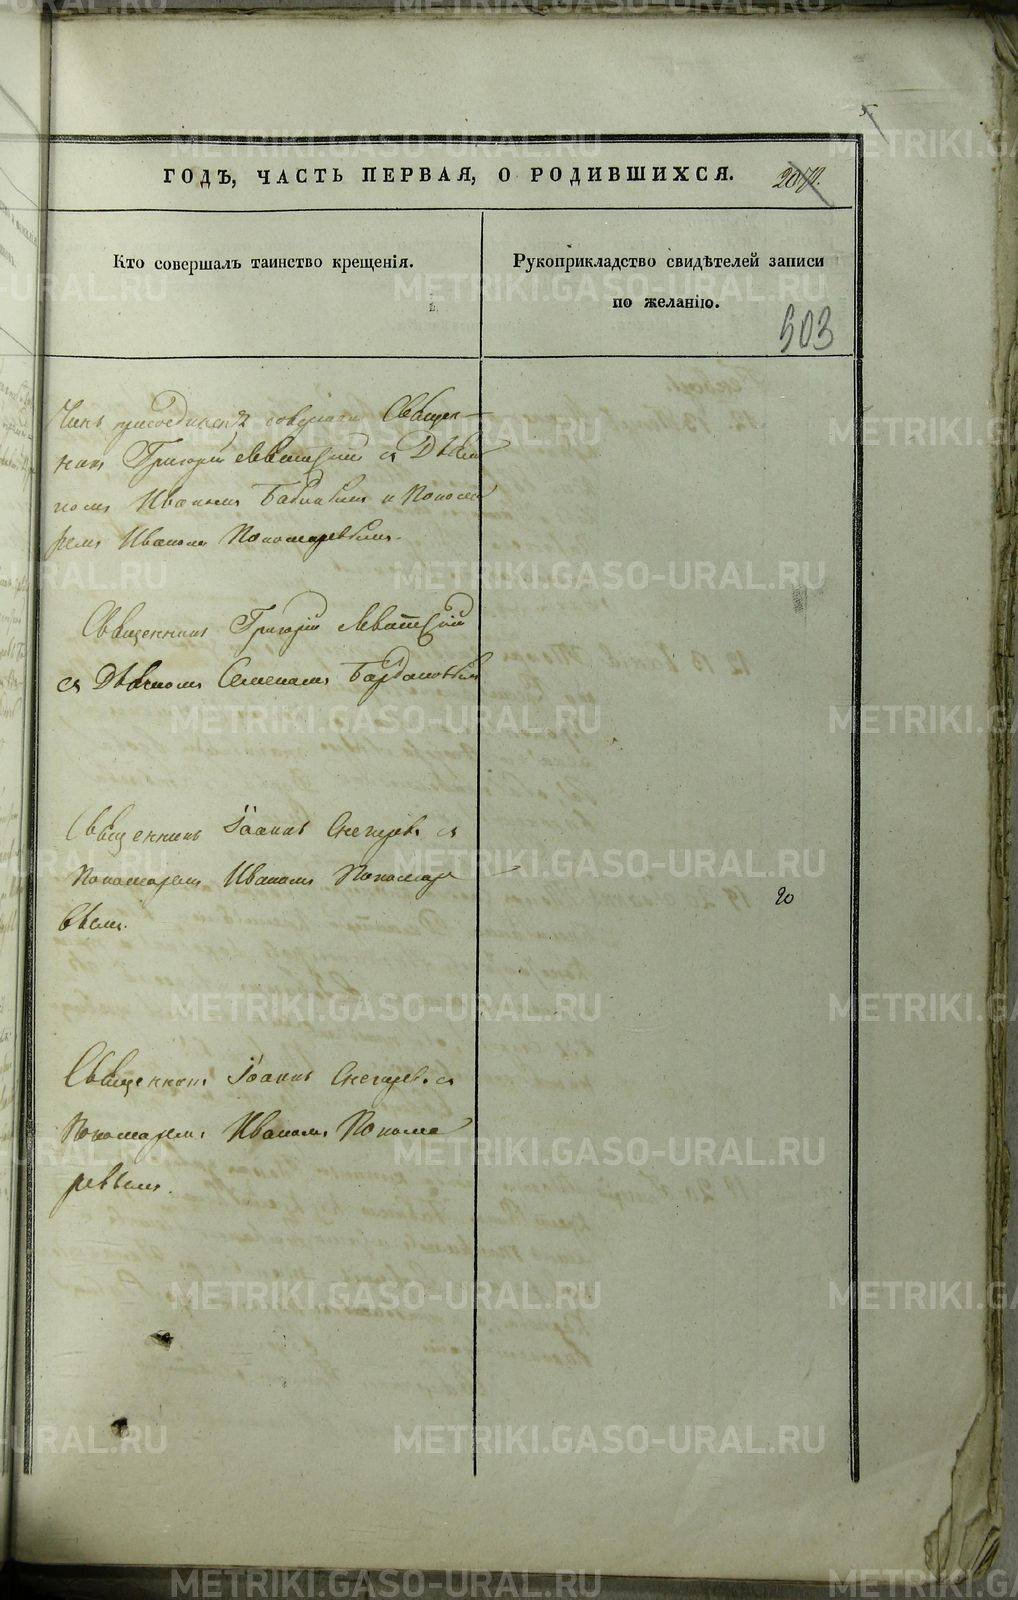 ГОДЪ, ЧАСТЬ ПЕРВАЯ, О РОДИВШИХСЯ.
Кто совершалъ таинство крещенія.
Рукоприкладство свидѣтелей записи
по желанію.
503
Чинъ присоединенія совершалъ Священ-
никъ Григорій Левитскій съ Дьяч
комъ Иваномъ и Понома
ремъ Иваномъ Пономаревымъ.
Священникъ Григорій Левитскій
съ Дьячкомъ Семеномъ
Священникъ Іоаннъ Снегирев съ
Пономаремъ Иваномъ Пономар
евымъ.
20
Священникъ Іоаннъ Снегирев съ
Пономаремъ Иваномъ Понома
ревымъ.
METRIKI.GASO-URAL.RU